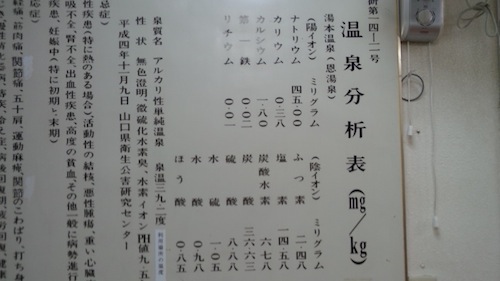 研第一四―二号
温泉分析表(mg/kg)
湯本温泉(恩湯泉)
(陽イオン) ミリグラム (陰イオン) ミリグラム
ナトリウム 四五・〇〇 ふっ素 二・四八
カリウム 〇・三八 塩素 一四・五八
カルシウム 一・八〇 炭酸水素 六七・八
第一鉄 〇・〇二 炭酸
リチウム 〇・〇一 硫酸 八・八八
水硫 一・〇五
水酸 〇・九八
ほう酸 〇・八五
泉質名 アルカリ性単純温泉 泉温三九・二度
性状 無色澄明、微硫化水素臭、水素イオンPH値九・五
平成四年十一月九日 山口県衛生公害研究センター
忌症)
性疾患(特に熱のある場合)、活動性の結核、悪性腫瘍、重い心臓
吸不全、腎不全、出血性疾患、高度の貧血、その他一般に病勢進行
疾患、妊娠中(特に初期と末期)
応症)
経痛、筋肉痛、関節痛、五十肩、運動麻痺、関節のこわばり、打ち身
痔疾、冷え症、病後回復期、疲労回復、健康